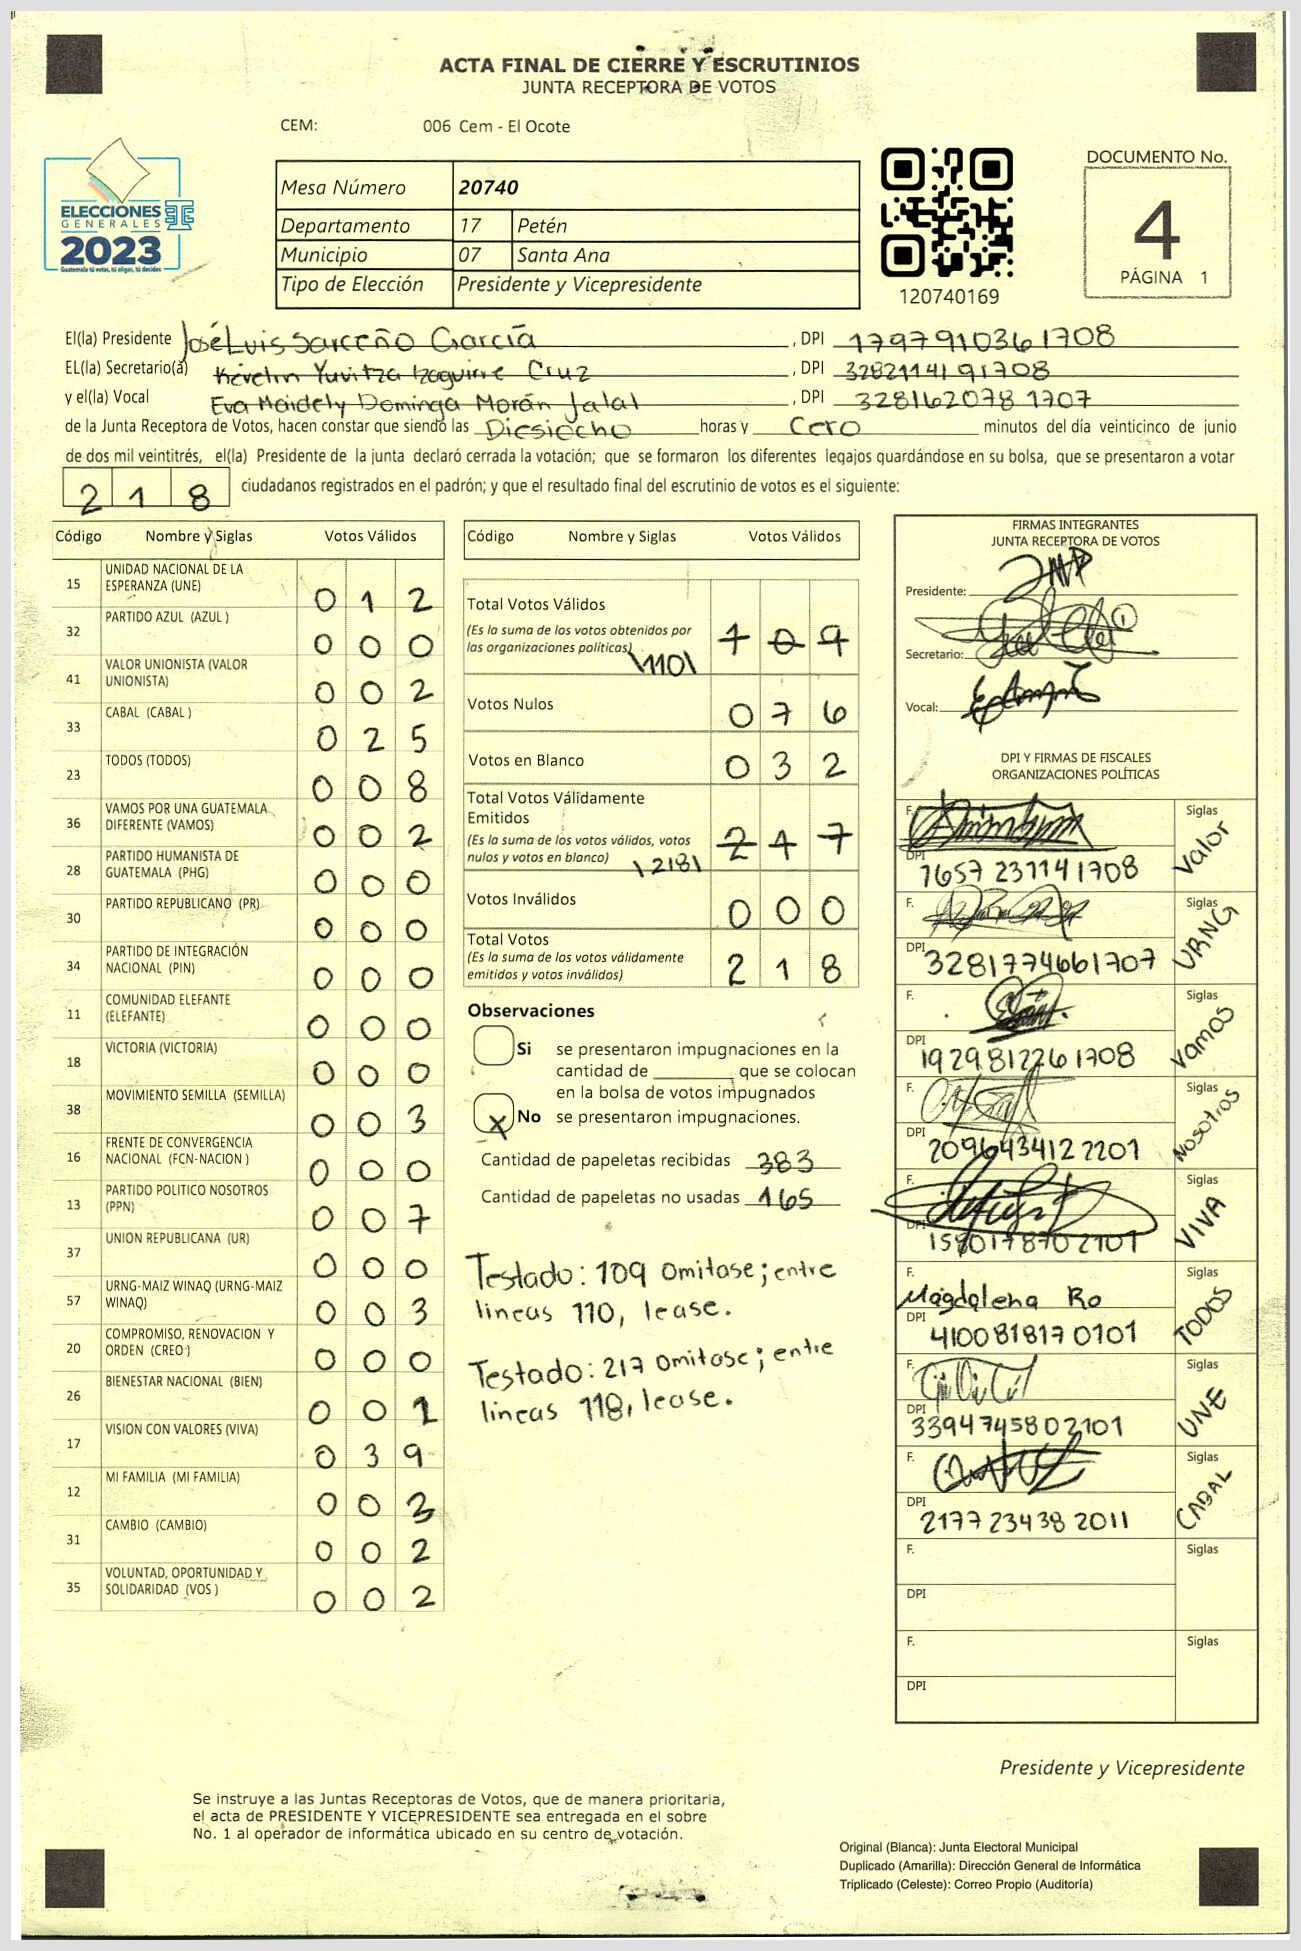 ACTA FINAL DE CIERRE Y ESCRUTINIOS
JUNTA RECEPTORA DE VOTOS
CEM: 006 Cem - El Ocote
ELECCIONES
GENERALES
2023
Guatemala tú votas, tú eliges, tú decides
Mesa Número 20740
Departamento 17 Petén
Municipio 07 Santa Ana
Tipo de Elección Presidente y Vicepresidente
120740169
DOCUMENTO No.
4
PÁGINA 1
El(la) Presidente José Luis Sarceño García, DPI 1797910361708
EL(la) Secretario(a) Kevelin Yuvitza Izaguirre Cruz, DPI 3282114191708
y el(la) Vocal Eva Maidely Dominga Morán Jalal, DPI 3281620781707
de la Junta Receptora de Votos, hacen constar que siendo las Diesiocho horas y Cero minutos del día veinticinco de junio
de dos mil veintitrés, el(la) Presidente de la junta declaró cerrada la votación; que se formaron los diferentes legajos guardándose en su bolsa, que se presentaron a votar
218 ciudadanos registrados en el padrón; y que el resultado final del escrutinio de votos es el siguiente:
Código Nombre y Siglas Votos Válidos
15 UNIDAD NACIONAL DE LA ESPERANZA (UNE) 0 1 2
32 PARTIDO AZUL (AZUL ) 0 0 0
41 VALOR UNIONISTA (VALOR UNIONISTA) 0 0 2
33 CABAL (CABAL ) 0 2 5
23 TODOS (TODOS) 0 0 8
36 VAMOS POR UNA GUATEMALA DIFERENTE (VAMOS) 0 0 2
28 PARTIDO HUMANISTA DE GUATEMALA (PHG) 0 0 0
30 PARTIDO REPUBLICANO (PR) 0 0 0
34 PARTIDO DE INTEGRACIÓN NACIONAL (PIN) 0 0 0
11 COMUNIDAD ELEFANTE (ELEFANTE) 0 0 0
18 VICTORIA (VICTORIA) 0 0 0
38 MOVIMIENTO SEMILLA (SEMILLA) 0 0 3
16 FRENTE DE CONVERGENCIA NACIONAL (FCN-NACION ) 0 0 0
13 PARTIDO POLITICO NOSOTROS (PPN) 0 0 7
37 UNION REPUBLICANA (UR) 0 0 0
57 URNG-MAIZ WINAQ (URNG-MAIZ WINAQ) 0 0 3
20 COMPROMISO, RENOVACION Y ORDEN (CREO ) 0 0 0
26 BIENESTAR NACIONAL (BIEN) 0 0 1
17 VISION CON VALORES (VIVA) 0 3 9
12 MI FAMILIA (MI FAMILIA) 0 0 3
31 CAMBIO (CAMBIO) 0 0 2
35 VOLUNTAD, OPORTUNIDAD Y SOLIDARIDAD (VOS ) 0 0 2
Código Nombre y Siglas Votos Válidos
Total Votos Válidos
(Es la suma de los votos obtenidos por
las organizaciones políticas) \110\ 1 0 9
Votos Nulos 0 7 6
Votos en Blanco 0 3 2
Total Votos Válidamente
Emitidos
(Es la suma de los votos válidos, votos
nulos y votos en blanco) \218\ 2 1 7
Votos Inválidos 0 0 0
Total Votos
(Es la suma de los votos válidamente
emitidos y votos inválidos) 2 1 8
Observaciones
Si se presentaron impugnaciones en la
cantidad de ________ que se colocan
en la bolsa de votos impugnados
X No se presentaron impugnaciones.
Cantidad de papeletas recibidas 383
Cantidad de papeletas no usadas 165
Testado: 109 omitase; entre
lineas 110, lease.
Testado: 217 omitase; entre
lineas 118, lease.
FIRMAS INTEGRANTES
JUNTA RECEPTORA DE VOTOS
Presidente:
Secretario:
Vocal:
DPI Y FIRMAS DE FISCALES
ORGANIZACIONES POLÍTICAS
F. Siglas Valor
DPI 1657 23114 1708
F. Siglas URNG
DPI 3281774661707
F. Siglas Vamos
DPI 1929812261708
F. Siglas Nosotros
DPI 2096434122201
F. Siglas VIVA
DPI 1580178702101
F. Magdalena Ro Siglas TODOS
DPI 4100818170101
F. Siglas UNE
DPI 3394745802101
F. Siglas CABAL
DPI 2177 23438 2011
F. Siglas
DPI
F. Siglas
DPI
Presidente y Vicepresidente
Se instruye a las Juntas Receptoras de Votos, que de manera prioritaria,
el acta de PRESIDENTE Y VICEPRESIDENTE sea entregada en el sobre
No. 1 al operador de informática ubicado en su centro de votación.
Original (Blanca): Junta Electoral Municipal
Duplicado (Amarilla): Dirección General de Informática
Triplicado (Celeste): Correo Propio (Auditoría)